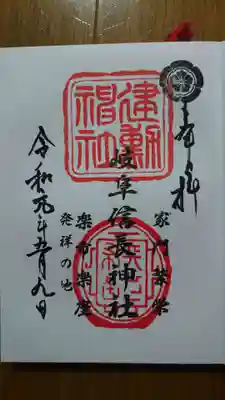 奉拝
家門繁栄
建勲
神社
岐阜信長神社
楽市楽座
発祥の地
令和元年五月九日